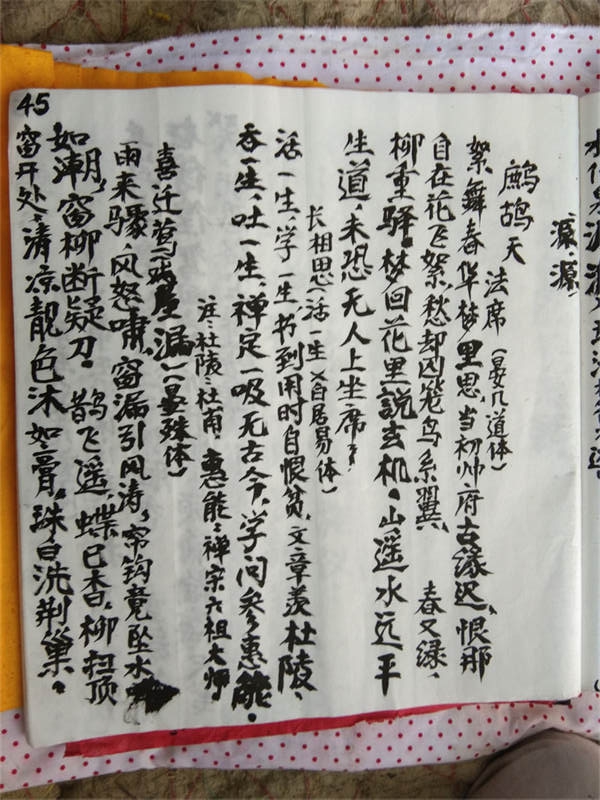 45
源、源、
鹧鸪天 法席(晏几道体)
絮舞春华梦里思、当初帅府古缘迟、恨那
自在花飞絮、愁却囚笼鸟系翼、 春又绿、
柳重驿。梦回花里説玄机。山遥水远平
生道、未恐无人上坐席。
长相思(活一生)(白居易体)
活一生、学一生、书到用时自恨贫、文章羡杜陵、
吞一生、吐一生、禅定一吸无古今、学问参惠能。
注:杜陵:杜甫、惠能:禅宗六祖大师。
喜迁莺 屋漏(晏殊体)
雨来骤、风怒啸、窗漏引风涛、帘钩竟坠水
如潮、窗柳断疑刀。鹊飞遥、蝶已杳、柳扭顶
窗开处、清凉靓色沐如膏。珠白洗荆巢。